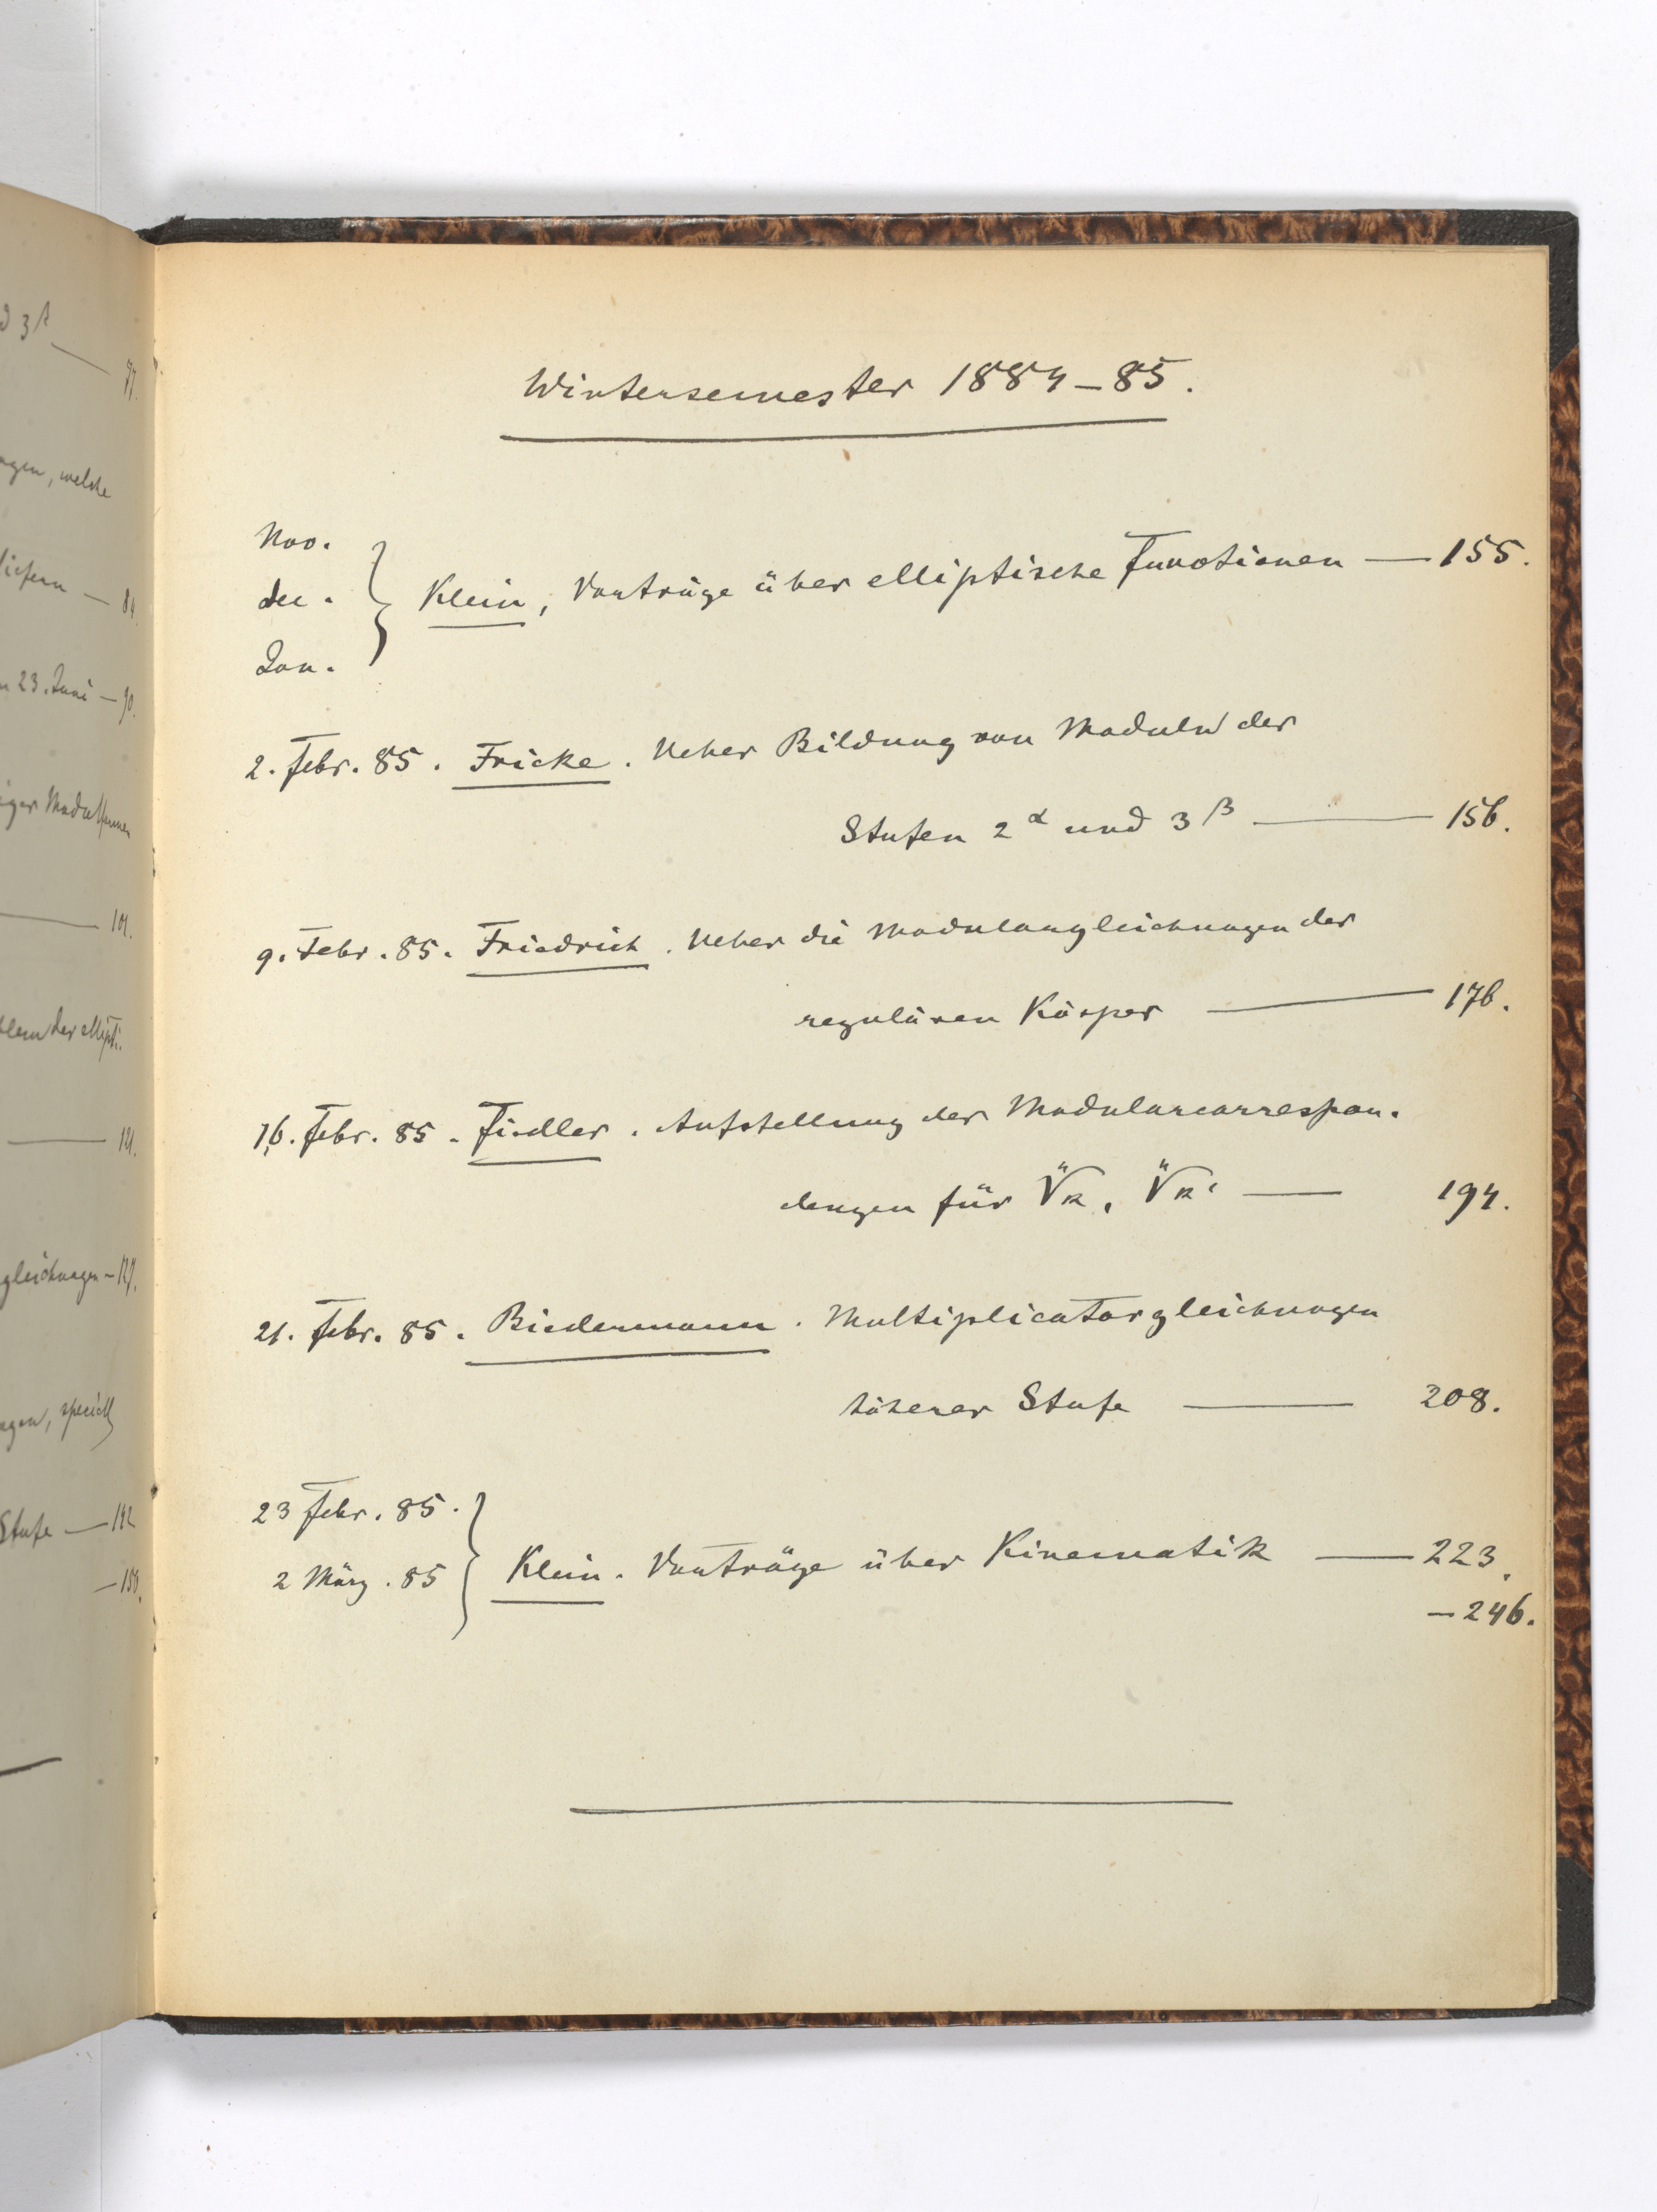 d 3β
— 77.
ngen, welche
liefern — 84.
n 23. Juni — 90.
— 101.
blem der ellipti-
— 121.
gleichungen — 127.
ngen, speciell
Stufe — 142
— 155.
Wintersemester 1884–85.
Nov.
Dec. } Klein, Vorträge über elliptische Functionen — 155.
Jan.
2. Febr. 85. Fricke. Ueber Bildung von Moduln der
Stufen 2^α und 3^β — 156.
9. Febr. 85. Friedrich. Ueber die Modulargleichungen der
regulären Körper — 176.
16. Febr. 85. Fiedler. Aufstellung der Modularcorrespon-
denzen für ⁿ√k, ⁿ√k' — 194.
21. Febr. 85. Biedermann. Multiplicatorgleichungen
höherer Stufe — 208.
23 Febr. 85. }
2 März. 85 } Klein. Vorträge über Kinematik — 223.
— 246.